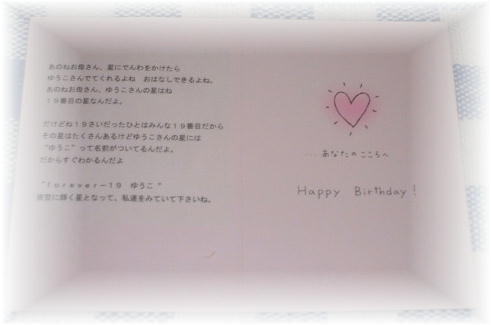 あのねお母さん、星にでんわをかけたら
ゆうこさんでてくれるよね　おはなしできるよね。
あのねお母さん、ゆうこさんの星はね
１９番目の星なんだよ。
だけどね１９さいだったひとはみんな１９番目だから
その星はたくさんあるけどゆうこさんの星には
“ゆうこ”って名前がついてるんだよ。
だからすぐわかるんだよ
“ｆｏｒｅｖｅｒ－１９　ゆうこ”
夜空に輝く星となって、私達をみていて下さいね。
...あなたのこころへ
Happy Birthday!